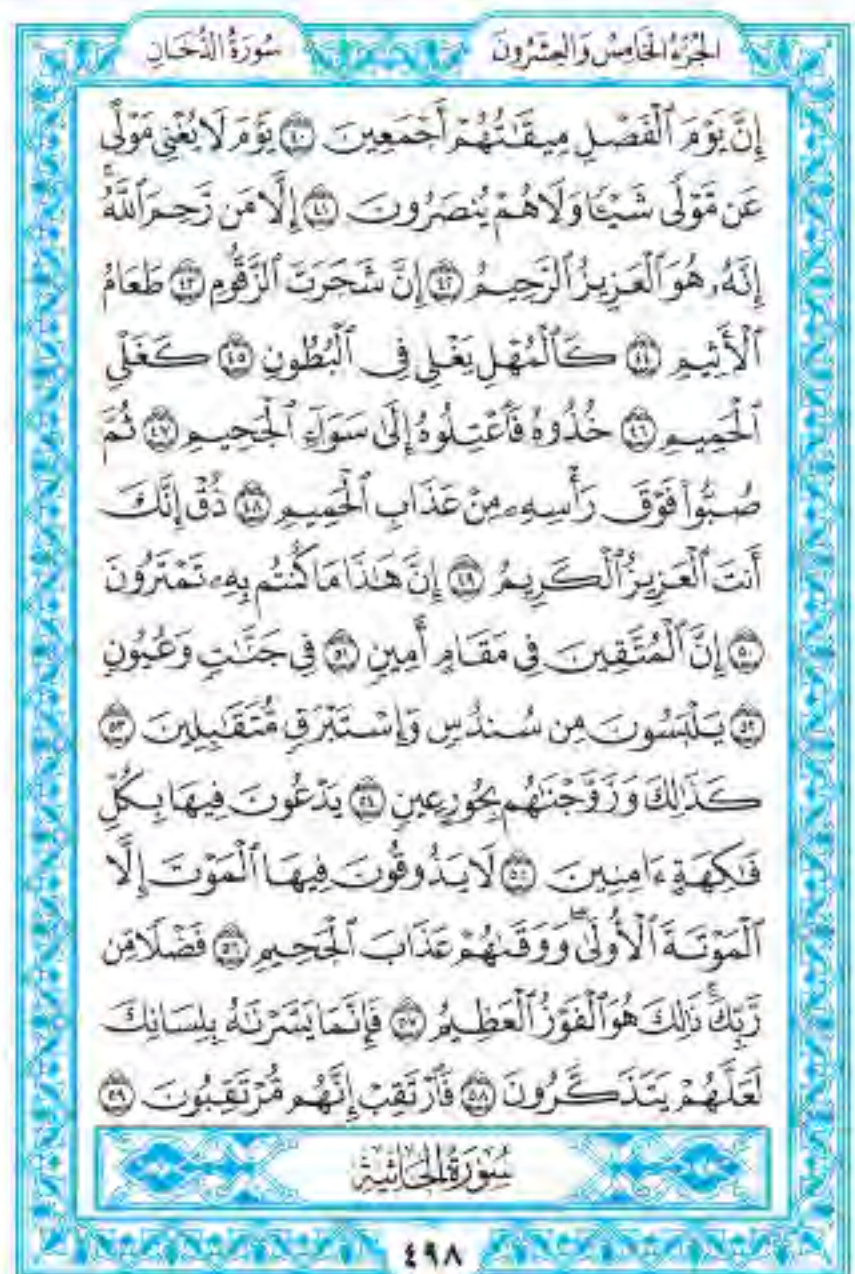 الجزء الخامس والعشرون
سورة الدخان
إِنَّ يَوْمَ ٱلْفَصْلِ مِيقَـٰتُهُمْ أَجْمَعِينَ ٤٠ يَوْمَ لَا يُغْنِى مَوْلًى
عَن مَّوْلًى شَيْـًٔا وَلَا هُمْ يُنصَرُونَ ٤١ إِلَّا مَن رَّحِمَ ٱللَّهُ ۚ
إِنَّهُۥ هُوَ ٱلْعَزِيزُ ٱلرَّحِيمُ ٤٢ إِنَّ شَجَرَتَ ٱلزَّقُّومِ ٤٣ طَعَامُ
ٱلْأَثِيمِ ٤٤ كَٱلْمُهْلِ يَغْلِى فِى ٱلْبُطُونِ ٤٥ كَغَلْىِ
ٱلْحَمِيمِ ٤٦ خُذُوهُ فَٱعْتِلُوهُ إِلَىٰ سَوَآءِ ٱلْجَحِيمِ ٤٧ ثُمَّ
صُبُّوا۟ فَوْقَ رَأْسِهِۦ مِنْ عَذَابِ ٱلْحَمِيمِ ٤٨ ذُقْ إِنَّكَ
أَنتَ ٱلْعَزِيزُ ٱلْكَرِيمُ ٤٩ إِنَّ هَـٰذَا مَا كُنتُم بِهِۦ تَمْتَرُونَ
٥٠ إِنَّ ٱلْمُتَّقِينَ فِى مَقَامٍ أَمِينٍ ٥١ فِى جَنَّـٰتٍ وَعُيُونٍ
٥٢ يَلْبَسُونَ مِن سُندُسٍ وَإِسْتَبْرَقٍ مُّتَقَـٰبِلِينَ ٥٣
كَذَٰلِكَ وَزَوَّجْنَـٰهُم بِحُورٍ عِينٍ ٥٤ يَدْعُونَ فِيهَا بِكُلِّ
فَـٰكِهَةٍ ءَامِنِينَ ٥٥ لَا يَذُوقُونَ فِيهَا ٱلْمَوْتَ إِلَّا
ٱلْمَوْتَةَ ٱلْأُولَىٰ ۖ وَوَقَىٰهُمْ عَذَابَ ٱلْجَحِيمِ ٥٦ فَضْلًا مِّن
رَّبِّكَ ۚ ذَٰلِكَ هُوَ ٱلْفَوْزُ ٱلْعَظِيمُ ٥٧ فَإِنَّمَا يَسَّرْنَـٰهُ بِلِسَانِكَ
لَعَلَّهُمْ يَتَذَكَّرُونَ ٥٨ فَٱرْتَقِبْ إِنَّهُم مُّرْتَقِبُونَ ٥٩
سورة الجاثية
٤٩٨